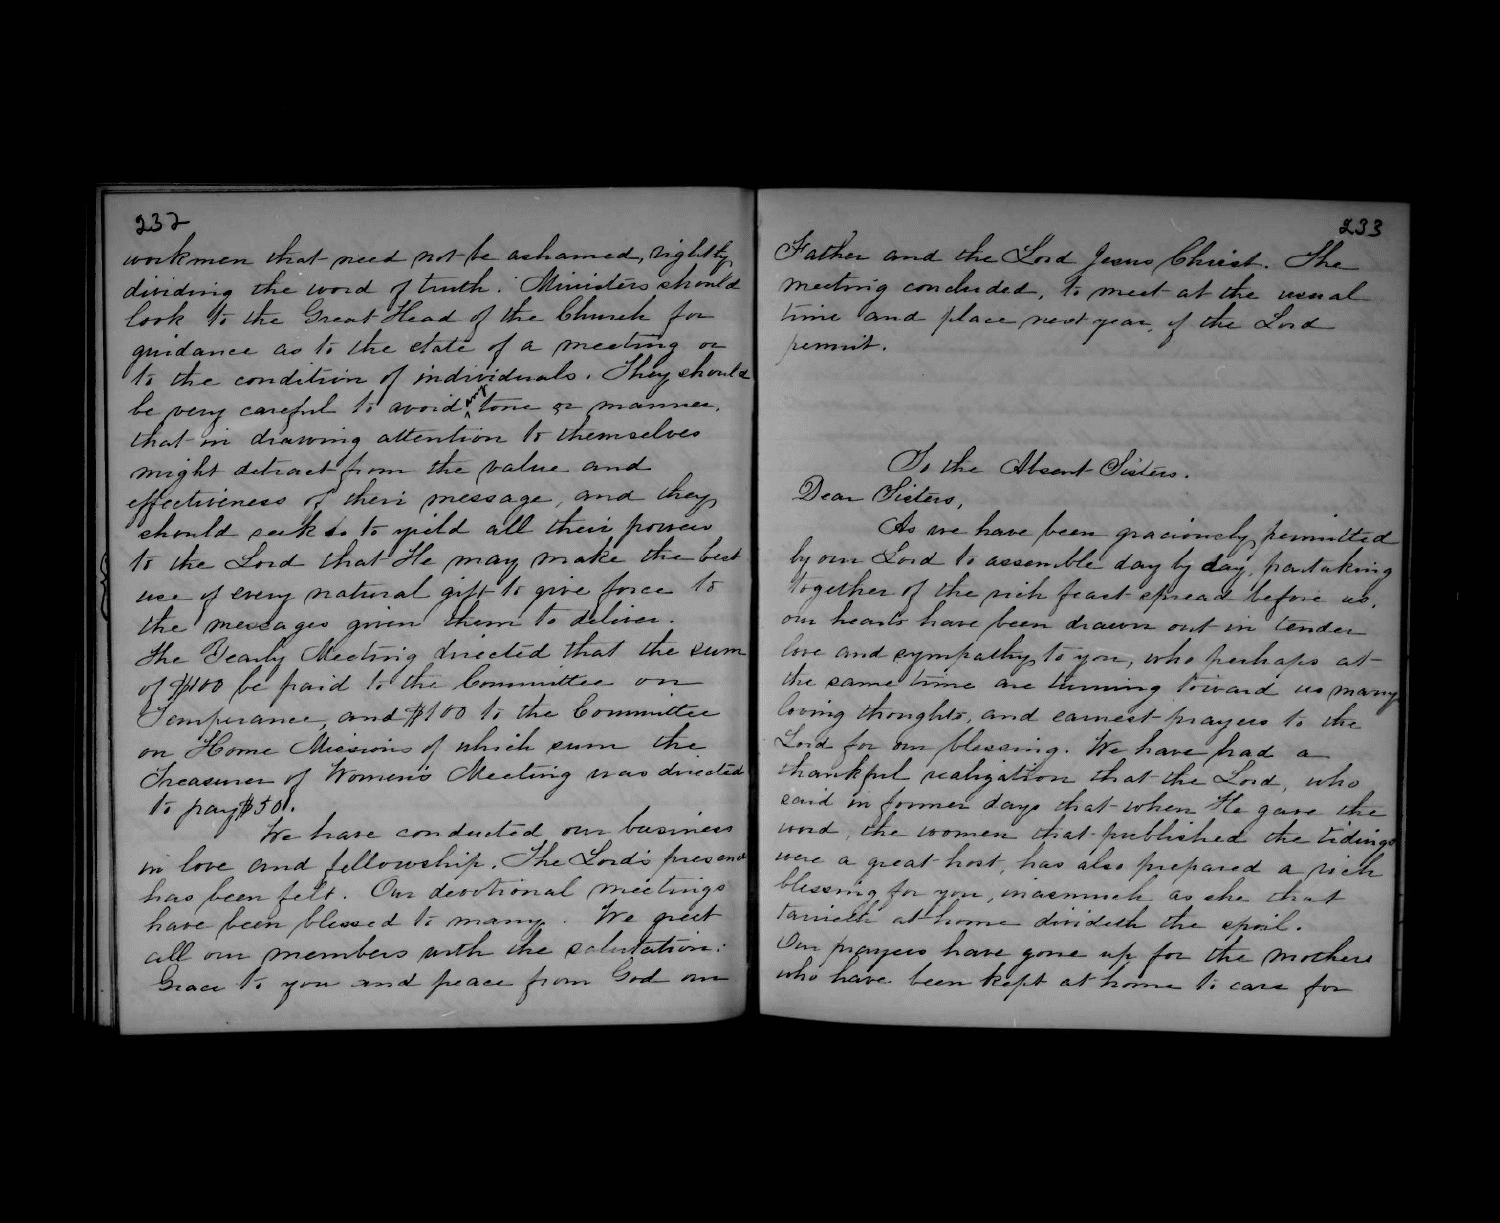 232
workmen that need not be ashamed, rightly
dividing the word of truth. Ministers should
look to the Great Head of the Church for
guidance as to the state of a meeting or
to the condition of individuals. They should
be very careful to avoid any tone or manner,
that in drawing attention to themselves
might detract from the value and
effectiveness of their message, and they
should seek to yield all their powers
to the Lord that He may make the best
use of every natural gift to give force to
the messages given them to deliver.
The Yearly Meeting directed that the sum
of $100 be paid to the Committee on
Temperance, and $100 to the Committee
on Home Missions of which sum the
Treasurer of Women's Meeting was directed
to pay $50.
We have conducted our business
in love and fellowship. The Lord's presence
has been felt. Our devotional meetings
have been blessed to many. We greet
all our members with the salutation:
Grace to you and peace from God our
233
Father and the Lord Jesus Christ. The
meeting concluded, to meet at the usual
time and place next year, if the Lord
permit.
To the Absent Sisters.
Dear Sisters,
As we have been graciously permitted
by our Lord to assemble day by day, partaking
together of the rich feast spread before us,
our hearts have been drawn out in tender
love and sympathy to you, who perhaps at
the same time are turning toward us many
loving thoughts, and earnest prayers to the
Lord for our blessing. We have had a
thankful realization that the Lord, who
said in former days that when He gave the
word, the women that published the tidings
were a great host, has also prepared a rich
blessing for you, inasmuch as she that
tarrieth at home divideth the spoil.
Our prayers have gone up for the mothers
who have been kept at home to care for